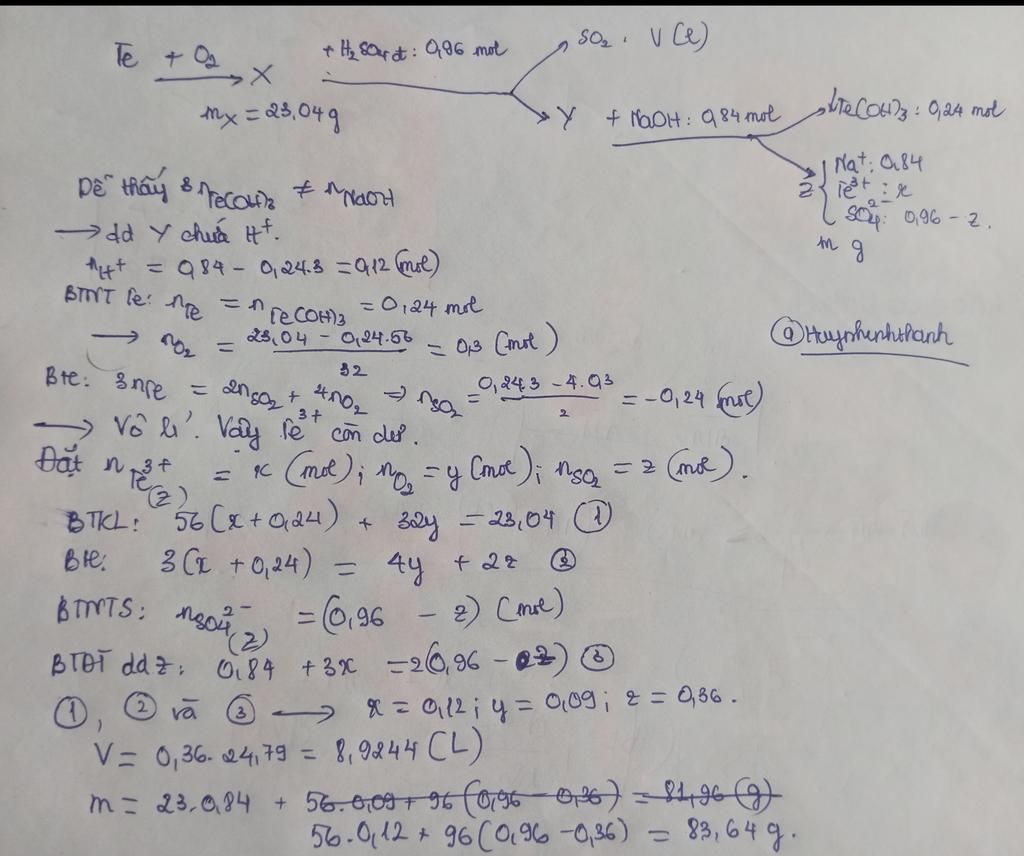 Fe + O2 → X + H2SO4 đ: 0,96 mol → SO2: V(l)
mX = 23,04g
→ Y + NaOH: 0,84 mol → ↓Fe(OH)3: 0,24 mol
Z { Na+: 0,84
Fe3+: x
SO4 2-: 0,96 - z.
m g
Dễ thấy 3nFe(OH)3 ≠ nNaOH
→ dd Y chứa H+.
nH+ = 0,84 - 0,24.3 = 0,12 (mol)
BTNT Fe: nFe = nFe(OH)3 = 0,24 mol
→ nO2 = (23,04 - 0,24.56)/32 = 0,3 (mol)
@Huynhenhthanh
Bte: 3nFe = 2nSO2 + 4nO2 ⇒ nSO2 = (0,24.3 - 4.0,3)/2 = -0,24 (mol)
→ Vô lí. Vậy Fe3+ còn dư.
Đặt nFe3+ (Z) = x (mol); nO2 = y (mol); nSO2 = z (mol).
BTKL: 56(x + 0,24) + 32y = 23,04 ①
Bte: 3(x + 0,24) = 4y + 2z ②
BTNTS: nSO4 2- (Z) = (0,96 - z) (mol)
BTĐT dd Z: 0,84 + 3x = 2(0,96 - z) ③
①, ② và ③ → x = 0,12; y = 0,09; z = 0,36.
V = 0,36.24,79 = 8,9244 (L)
m = 23.0,84 + 56.0,09 + 96(0,96 - 0,36) = 81,96 (g)
56.0,12 + 96(0,96 - 0,36) = 83,64 g.